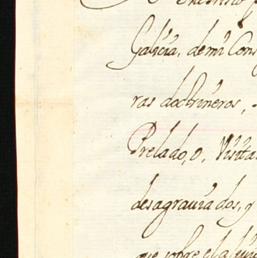 Galicia, de mi Cons
ras doctrineros,
Prelado, o, Visita
desagraviados, y
que sobre el